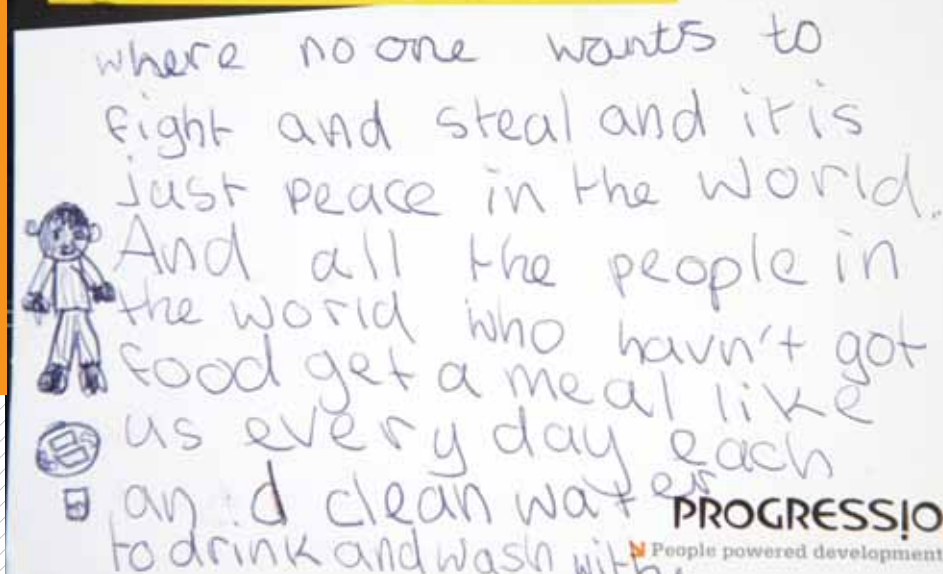 where no one wants to
fight and steal and it is
just peace in the world.
And all the people in
the world who havn't got
food get a meal like
us every day each
an d clean water
to drink and wash with.
PROGRESSIO
People powered development